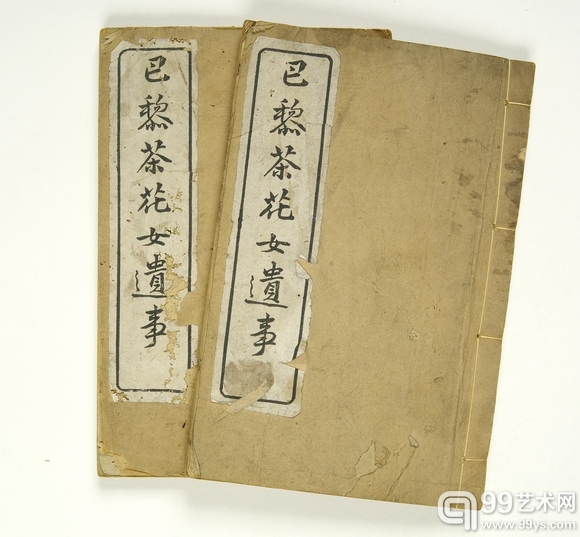 巴黎茶花女遺事
巴黎茶花女遺事
99艺术网
www.99ys.com